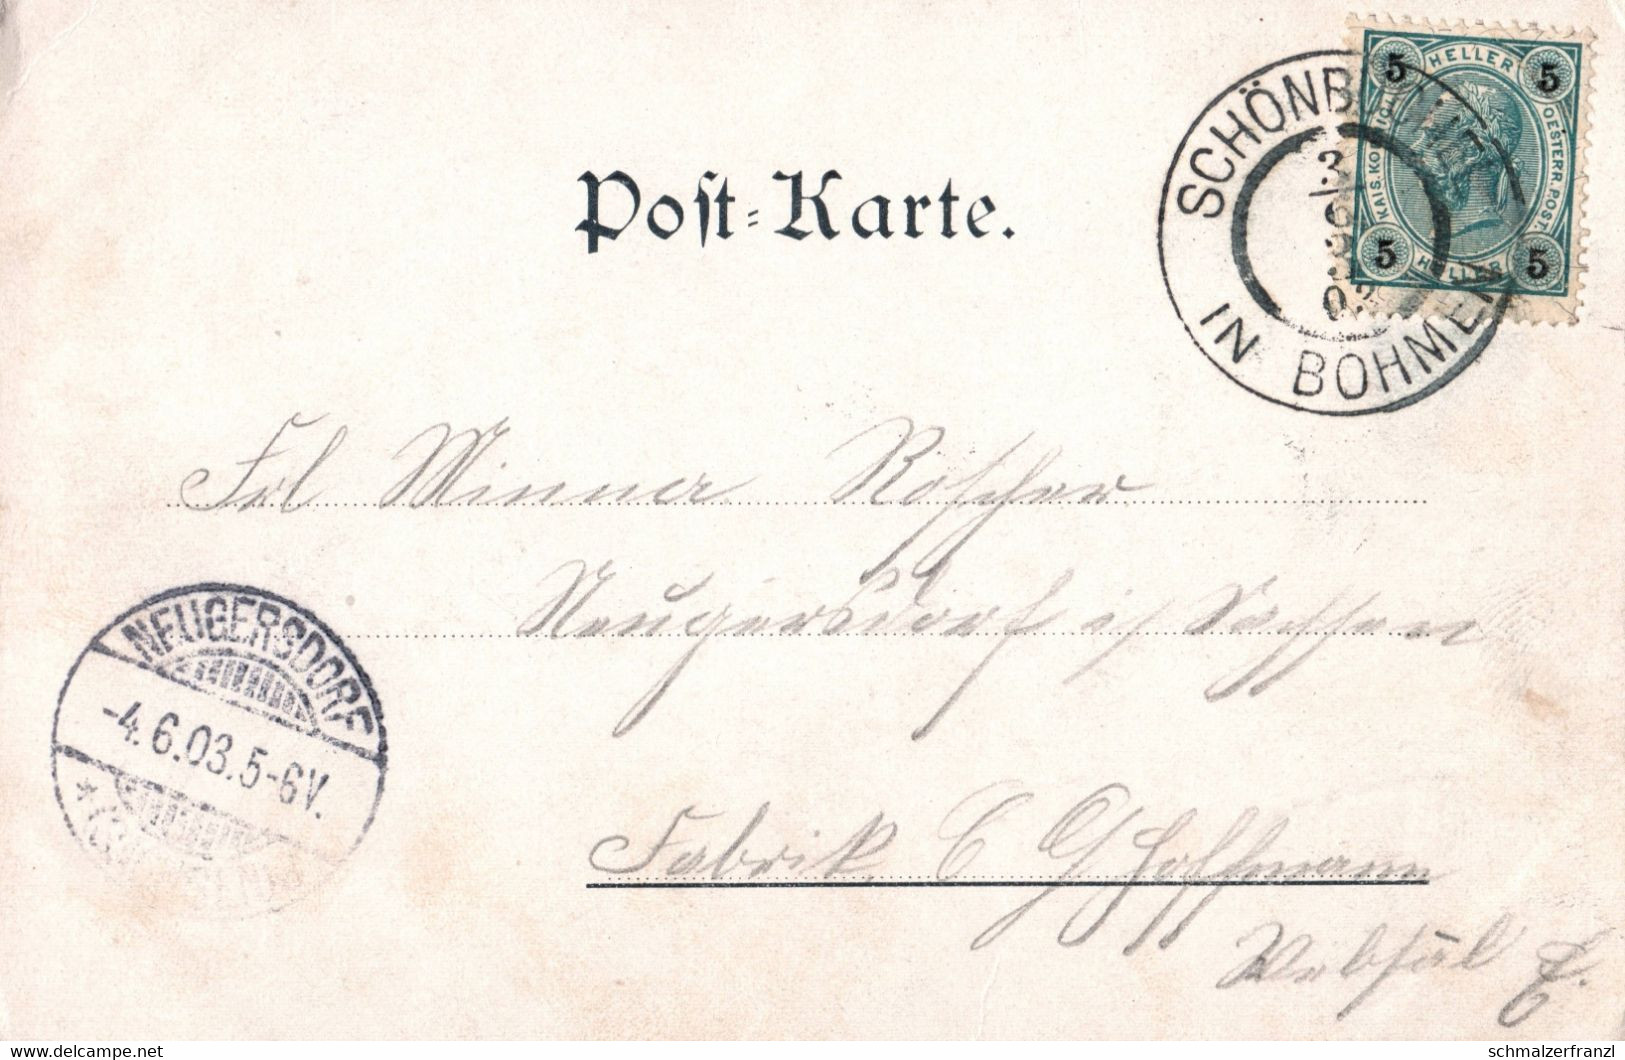 Post-Karte.
HELLER
5 5
KAIS. KÖNIGL. OESTERR. POST.
5 5
HELLER
SCHÖNBORN
3/6
03
IN BÖHMEN
Frl Minna Roscher
Neugersdorf i/ Sachsen
NEUGERSDORF
-4.6.03.5-6V.
* (SACHSEN)
Fabrik C G Hoffmann
Websäl
delcampe.net
schmalzerfranzl